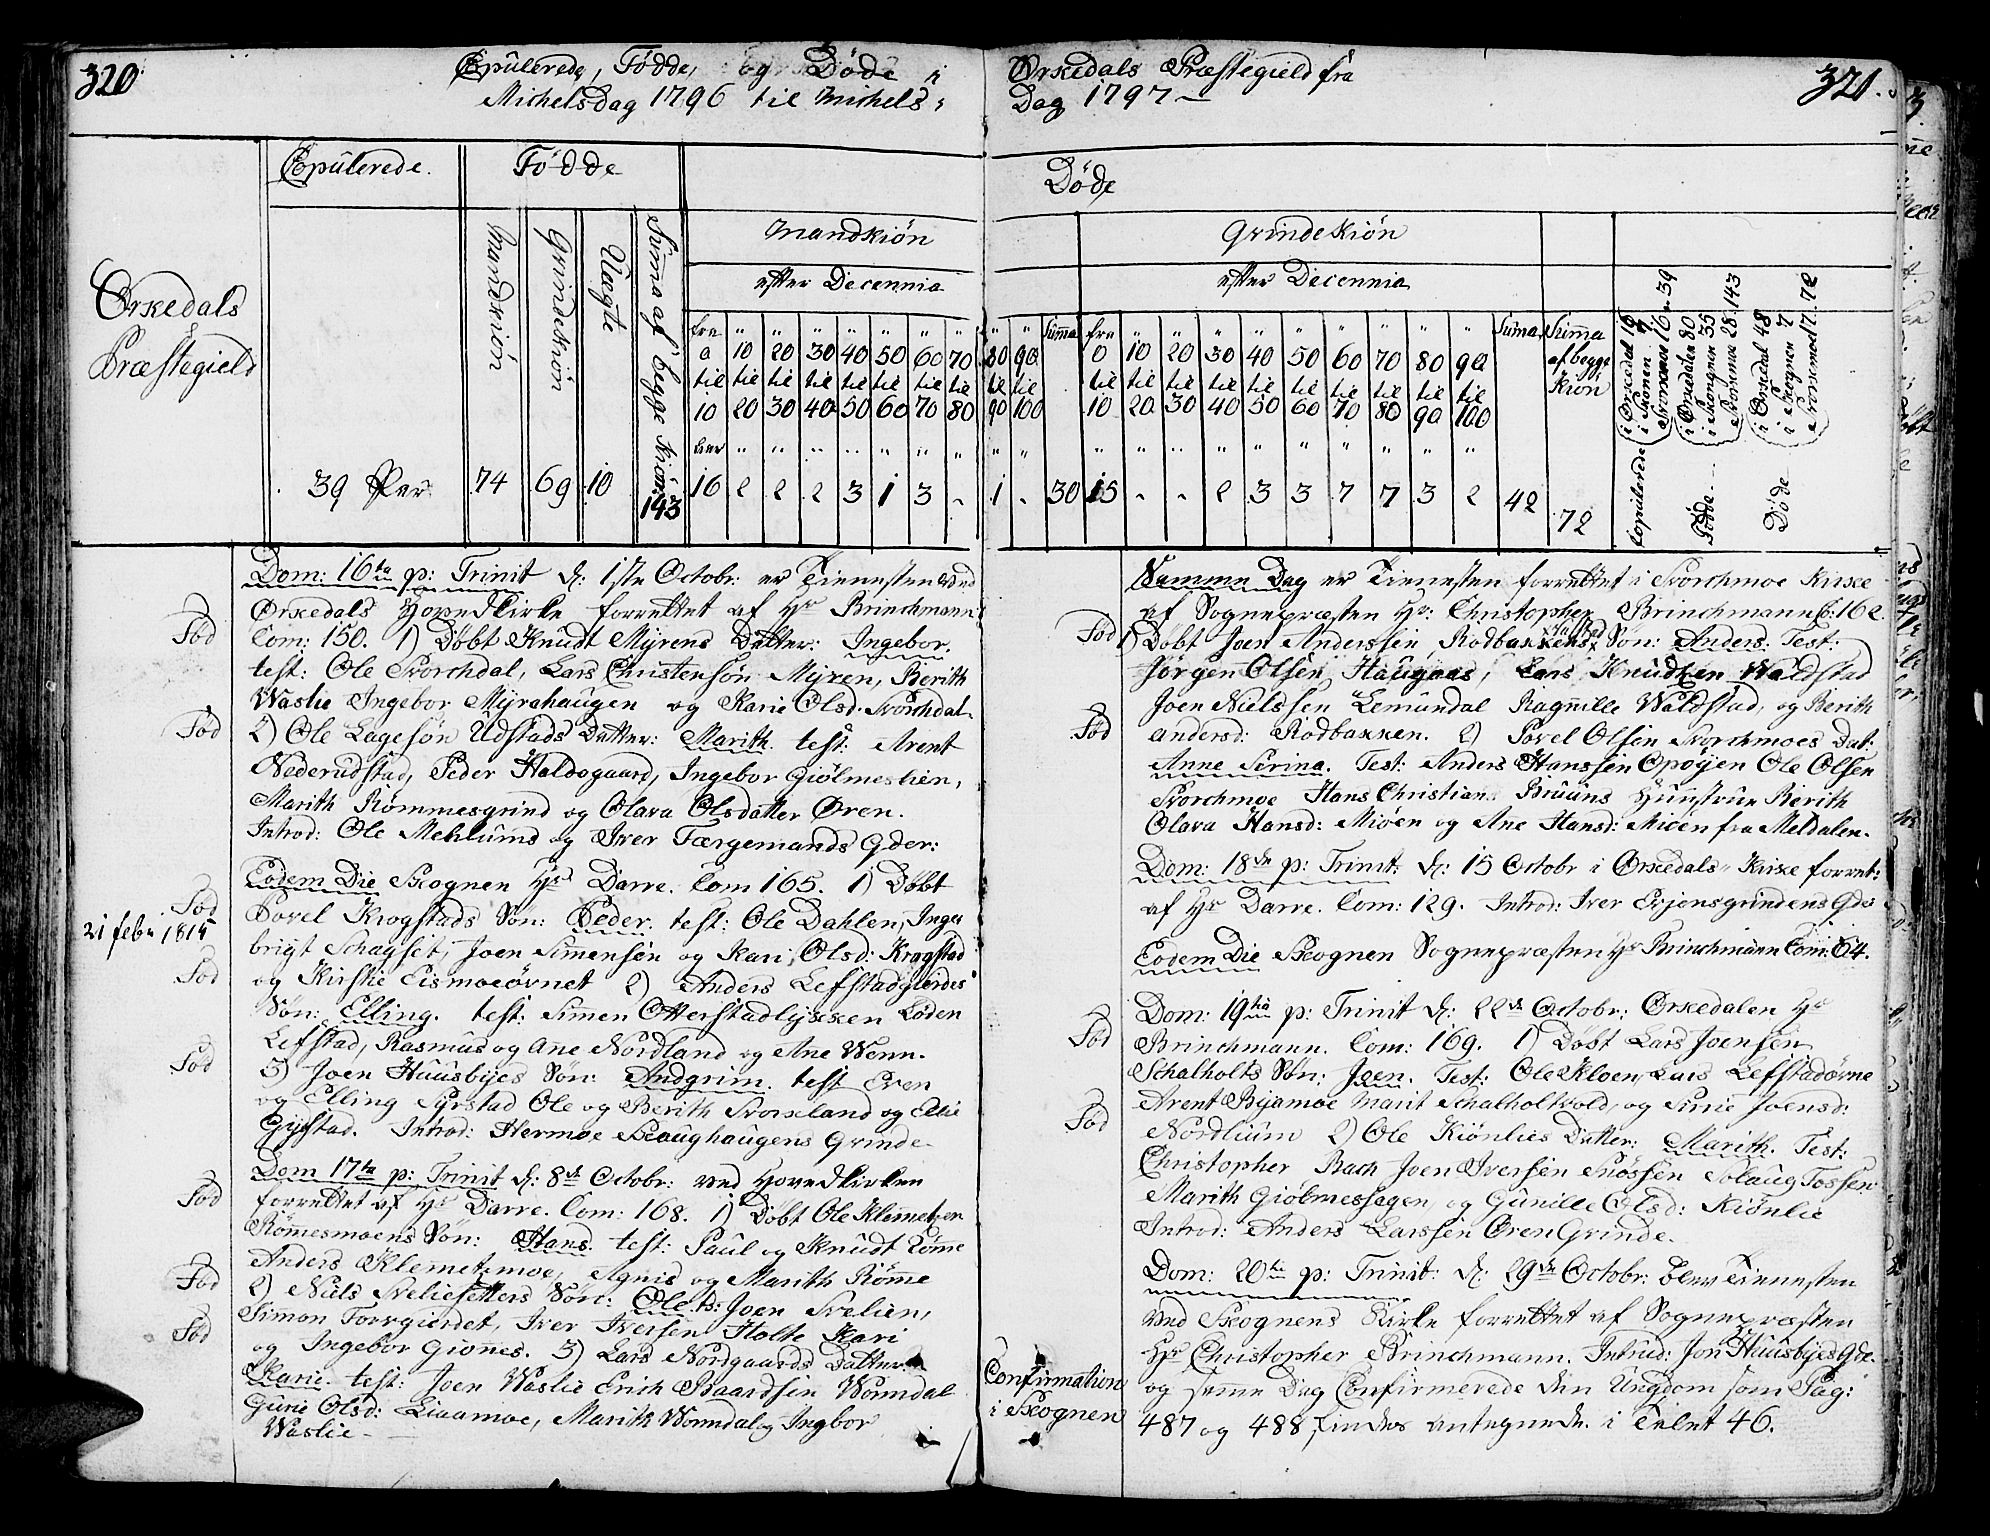 320
Copulerede, Fødde, og Døde i
Michelsdag 1796 til Michels-
Ørkedals Præstegield fra
Dag 1797
321.
Ørkedals
Præstegield
Copulerede.
Fødde
Døde
Mandkiøn
Qvindekiøn
Uægte
Suma af begge Kiøn
Mandkiøn
efter Decennia
Qvindekiøn
efter Decennia
fra 0 til 10
10 til 20
20 til 30
30 til 40
40 til 50
50 til 60
60 til 70
70 til 80
80 til 90
90 til 100
Suma
fra 0 til 10
10 til 20
20 til 30
30 til 40
40 til 50
50 til 60
60 til 70
70 til 80
80 til 90
90 til 100
Suma
Suma af begge Kiøn
39 Par 74 69 10 143 16 2 2 2 3 1 3 - 1 - 30 15 - - 2 3 3 7 7 3 2 42 72
Copulerede i Ørkedal 16 i Skognen 7 Svorkmoe 16 39
Fødde i Ørkedalen 80 i Skongnen 35 Svorkmoe 28 143
Døde i Ørkedal 48 i Skognen 7 Svorkmoe 17 72
Dom: 16ta p: Trinit d: 1ste Octobr: er Tienesten ved
Ørkedals Hoved Kirke forrettet af Hr Brinchmann
Fød
Com: 150. 1) Døbt Knudt Myrens Datter: Ingebor.
test: Ole Svorchdal, Lars Christensøn Myren, Berith
Waslie Ingebor Myrahaugen og Karie Olsd. Svorchdal.
Fød
2) Ole Lagesøn Udstads Datter: Marith. test: Arent
Nederudstad, Peder Haldogaard, Ingebor Giølmeslien,
Marith Rømmesgrind og Olava Olsdatter Øren.
Introd: Ole Mehlums og Iver Færgemands Qder:
Eodem Die Skognen Hr Darre. Com 165. 1) Døbt
Fød
21 febr 1815
Povel Krogstads Søn: Peder. test: Ole Dahlen, Inge
brigt Schagset, Joen Simensen og Kari Olsd: Kragstad
Fød
og Kirstie Eismoeørnet 2) Anders Lefstadgierdes
Søn: Elling. test: Simen Otterstadlykken Loden
Lefstad, Rasmus og Ane Nordland og Ane Wenn.
Fød
3) Joen Huusbyes Søn: Andgrim. test Even
og Elling Syrstad Ole og Berith Svorkland og Elie
Gystad. Introd: Hermoe Skaughaugens Qvinde
Dom 17ta p: Trinit d: 8de Octobr: ved Hoved Kirken
Fød
forrettet af Hr Darre. Com: 168. 1) Døbt Ole Klemetsen
Rømmesmoens Søn: Hans. test: Paul og Knudt Rømme
Anders Klemetsmoe, Agnis og Marith Rømme
Fød
2) Niels Sveliesetters Søn: Ole. ts: Joen Svelien,
Simon Torvgierdet, Iver Iversen Holte Kari
Fød
og Ingebor Gionnes. 3) Lars Nordgaards Datter
Karie. test: Joen Waslie Erich Baardsen Wormdal
Gurie Olsd: Liaamoe, Marith Wormdal og Ingbor
Waslie
Samme Dag er Tienesten forrettet i Svorchmoe Kirke
af Sognepræsten Hr: Christopher Brinchmann C: 162
Fød
1) Døbt Joen Anderssen Rodbakkens Søn: Anders. Test:
Jørgen Olsen Haugaas, Lars Knudsen Waldstad
Joen Nielssen Lemundal Ragnille Waldstad, og Berith
Fød
Andersd: Rodbakken. 2) Povel Olsen Svorchmoes Dat:
Anne Serina. Test: Anders Hanssen Opøyen Ole Olsen
Svorchmoe Hans Christian Bruuns Hustrue Berith
Olava Hansd: Mioen og Ane Hansd: Mioen fra Meldalen.
Dom: 18de p: Trinit: d: 15 Octobr i Ørkedals Kirke forret:
af Hr Darre. Com: 129. Introd: Iver Evjensgrindens Qde
Eodem Die Skognen Sognepræsten Hr Brinchmann Com: 64.
Dom: 19na p: Trinit d: 22de Octobr: Ørkedalen Hr
Fød
Brinchmann. Com: 169. 1) Døbt Lars Joensen
Schalholts Søn: Joen. Test: Ole Kloen, Lars Lefstadørne
Arent Byamoe Marit Schalholtvold, og Siriie Joensd:
Fød
Nordlium 2) Ole Kiønlies Datter: Marith. Test:
Christopher Rach Joen Iversen Snøssen Solaug Fossen
Marith Giølmessegen, og Gunille Olsd: Kiønlie
Introd: Anders Larssen Øren Qvinde.
Dom: 20de p: Trinit: d: 29de Octobr: blev Tienesten
ved Skognens Kirke forrettet af Sognepræsten
Hr Christopher Brinchmann. Introd: Jon Huusbyes Qde.
Confirmation
i Skognen
og samme Dag Confirmerede den Ungdom som Pag:
487 og 488 findes antegnede i Talet 46.